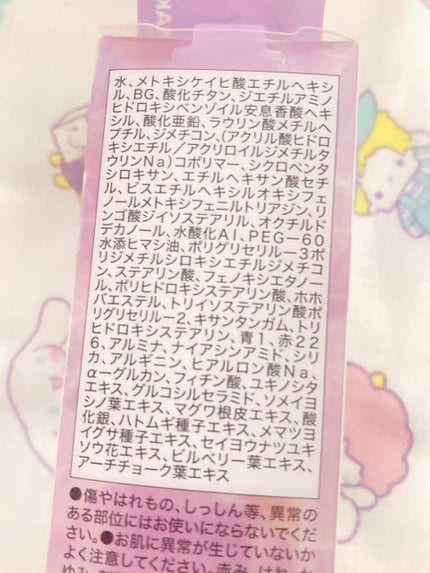 水、メトキシケイヒ酸エチルヘキシ
ル、BG、酸化チタン、ジエチルアミノ
ヒドロキシベンゾイル安息香酸ヘキ
シル、酸化亜鉛、ラウリン酸メチルヘ
プチル、ジメチコン、(アクリル酸ヒドロ
キシエチル/アクリロイルジメチルタ
ウリンNa)コポリマー、シクロペンタ
シロキサン、エチルヘキサン酸セチ
ル、ビスエチルヘキシルオキシフェ
ノールメトキシフェニルトリアジン、リ
ンゴ酸ジイソステアリル、オクチルド
デカノール、水酸化Al、PEG-60
水添ヒマシ油、ポリグリセリル-3ポ
リジメチルシロキシエチルジメチコ
ン、ステアリン酸、フェノキシエタノー
ル、ポリヒドロキシステアリン酸、ホホ
バエステル、トリイソステアリン酸ポ
リグリセリル-2、キサンタンガム、トリ
ヒドロキシステアリン、青1、赤22
6、アルミナ、ナイアシンアミド、シリ
カ、アルギニン、ヒアルロン酸Na、
α-グルカン、フィチン酸、ユキノシタ
エキス、グルコシルセラミド、ソメイヨ
シノ葉エキス、マグワ根皮エキス、酸
化銀、ハトムギ種子エキス、メマツヨ
イグサ種子エキス、セイヨウナツユキ
ソウ花エキス、ビルベリー葉エキス、
アーチチョーク葉エキス
●傷やはれもの、しっしん等、異常の
ある部位にはお使いにならないでくだ
さい。●お肌に異常が生じていないか
よく注意してください。赤み、はれ、か